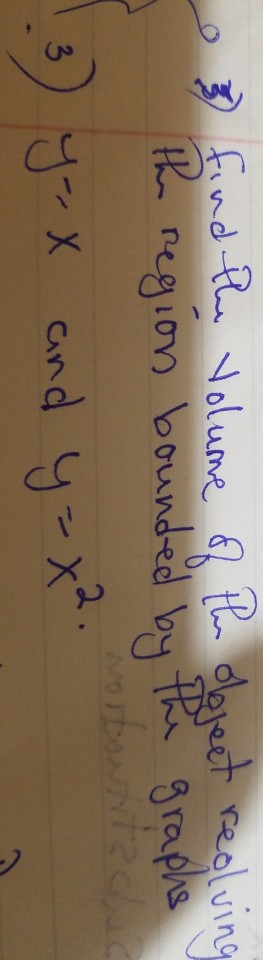 3) find the volume of the object reolving
the region bounded by the graphs
3) y = x and y = x².